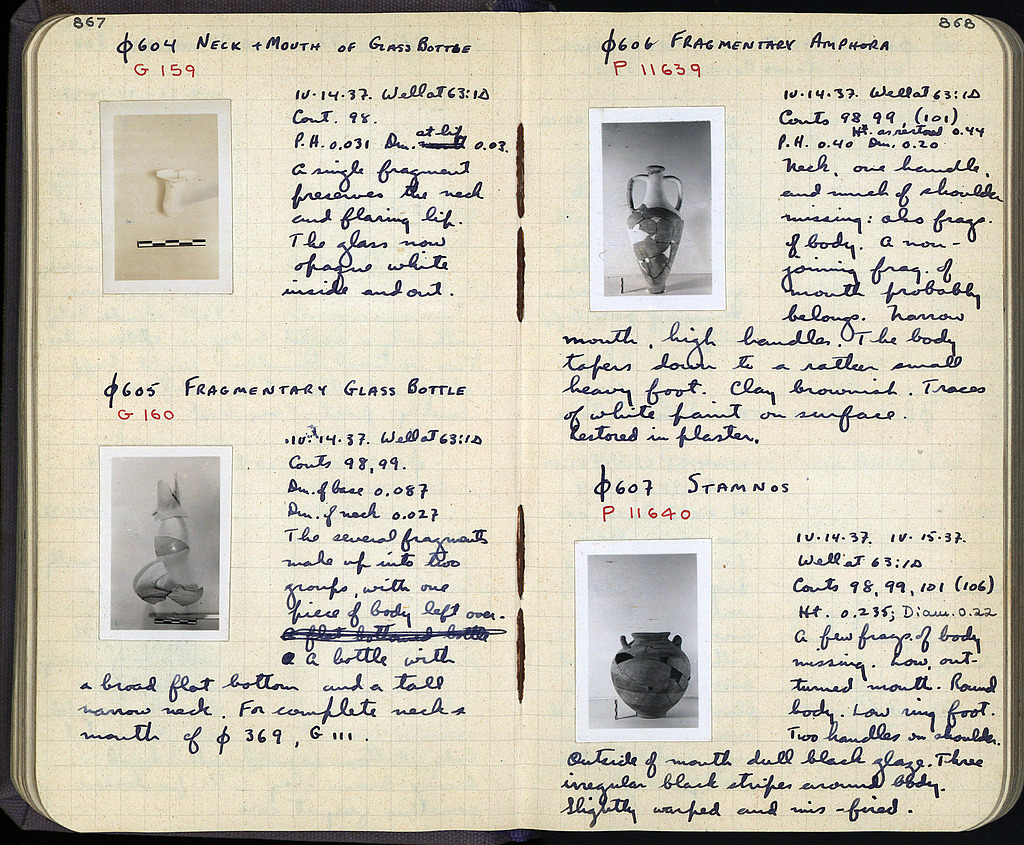 867
ϕ604 NECK + MOUTH OF GLASS BOTTLE
G 159
IV-14-37. Well at 63:ΙΔ
Cont. 98.
at lip
P.H. 0.031 Dm. 0.03.
A single fragment
preserves the neck
and flaring lip.
The glass now
opaque white
inside and out.
ϕ605 FRAGMENTARY GLASS BOTTLE
G 160
IV-14-37. Well at 63:ΙΔ
Conts 98, 99.
Dm. of base 0.087
Dm. of neck 0.027
The several fragments
make up into two
groups, with one
piece of body left over.
a flat bottomed bottle
A bottle with
a broad flat bottom and a tall
narrow neck. For complete neck +
mouth cf ϕ 369, G 111.
868
ϕ606 FRAGMENTARY AMPHORA
P 11639
IV-14-37. Well at 63:ΙΔ
Conts 98 99, (101)
Ht. as restored 0.44
P.H. 0.40 Dm. 0.20
Neck, one handle,
and much of shoulder
missing: also frags.
of body. A non-
joining frag. of
mouth probably
belongs. Narrow
mouth, high handles. The body
tapers down to a rather small
heavy foot. Clay brownish. Traces
of white paint on surface.
Restored in plaster.
ϕ607 STAMNOS
P 11640
IV-14-37. IV-15-37.
Well at 63:ΙΔ
Conts 98, 99, 101 (106)
Ht. 0.235; Diam. 0.22
A few frags. of body
missing. Low, out-
turned mouth. Round
body. Low ring foot.
Two handles on shoulder.
Outside of mouth dull black glaze. Three
irregular black stripes around body.
Slightly warped and mis-fired.